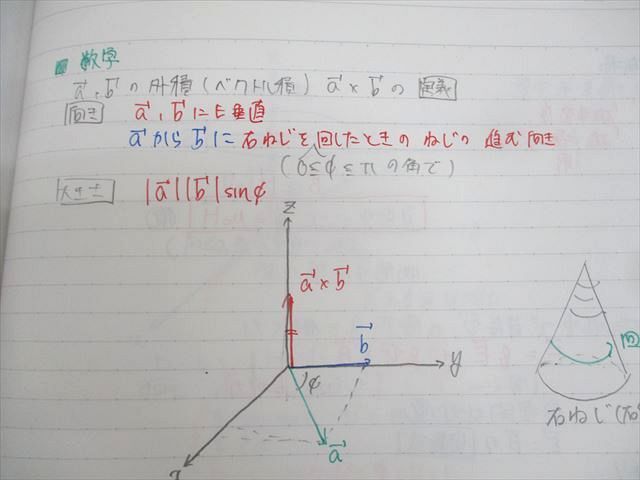 数学
a⃗, b⃗ の外積(ベクトル積) a⃗×b⃗ の 定義
向き a⃗, b⃗ に垂直
a⃗から b⃗に 右ねじを回したときの ねじの 進む向き
(0≦φ≦πの角で)
大きさ |a⃗||b⃗|sinφ
z
a⃗×b⃗
b⃗
y
φ
a⃗
x
回
右ねじ(右